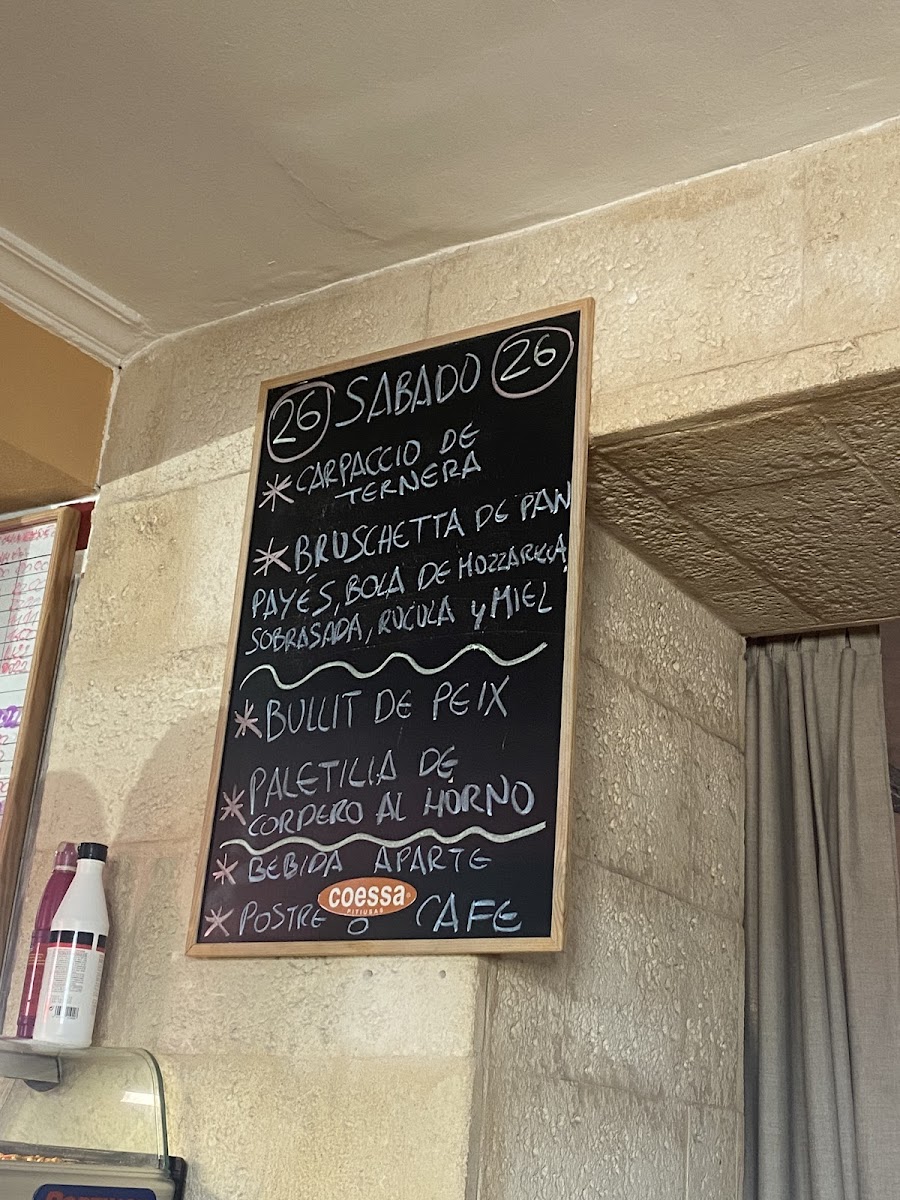 26 SABADO 26
* CARPACCIO DE
TERNERA
* BRUSCHETTA DE PAN
PAYÉS, BOLA DE MOZZARELLA,
SOBRASADA, RUCULA Y MIEL
* BULLIT DE PEIX
* PALETILIA DE
CORDERO AL HORNO
* BEBIDA APARTE
coessa
PITIUSAS
* POSTRE O CAFE